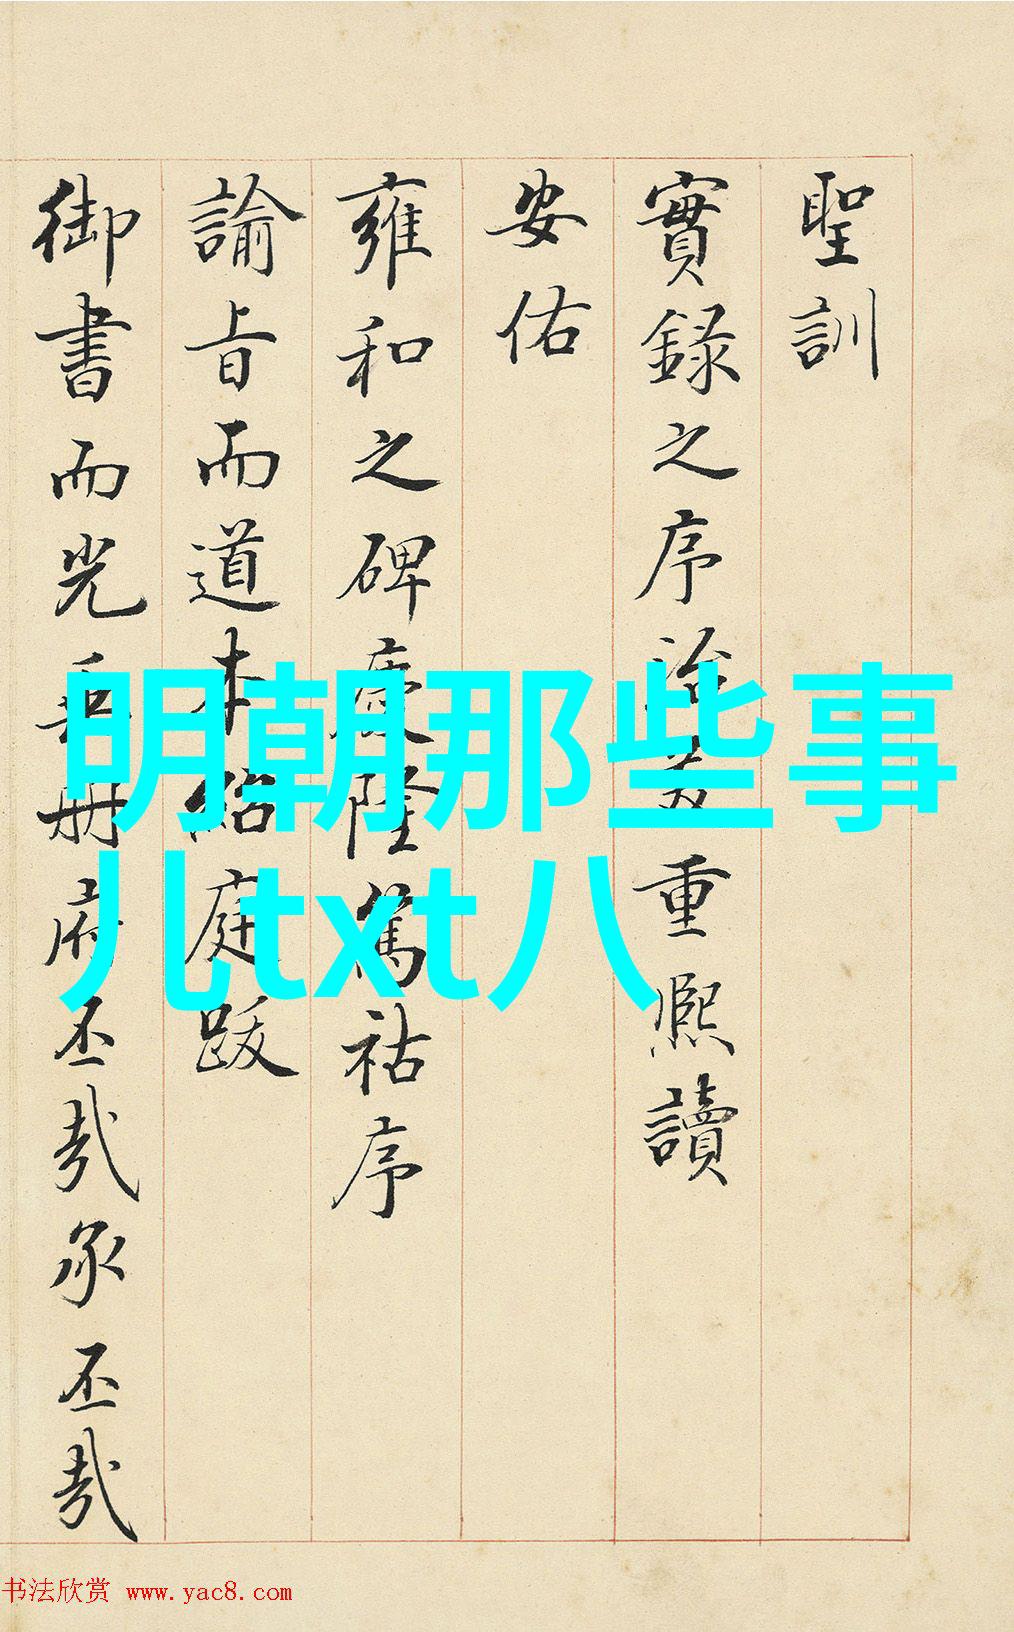 聖訓
實錄之序治法重熙讀
安佑
雍和之碑慶隆篤祜序
諭旨而道本貽庭跋
御書而光冊府丕哉承丕哉
明朝那些事
儿txt八
书法欣赏 www.yac8.com